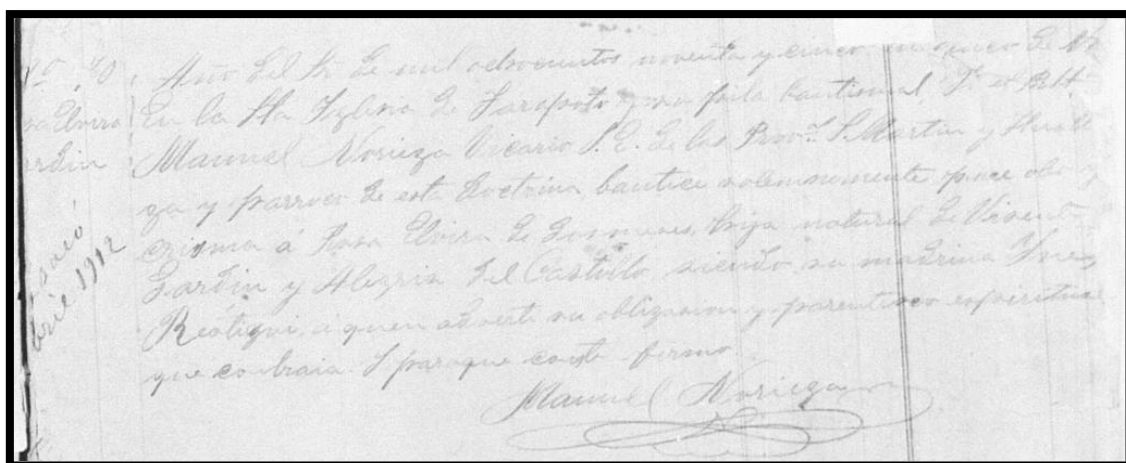 Nº 90
Rosa Elvira
Jardin
Casaró
Abril 1912
Año del Sr. de mil ochocientos noventa y cinco, en cinco de
En la Sta Iglesia de Tarapoto y su pila bautismal, Yo el
Manuel Noriega Vicario P. E. de las Prov.s S. Martin y Hualla
ga y parroco de esta Doctrina bautice solemnemente puse oleo y
crisma á Rosa Elvira de dos meses, hija natural de Vicente
Jardin y Alegria del Castillo siendo su madrina Ines
Reátegui, a quien adverti su obligacion y parentesco espiritual
que contraia. I paraque conste firmo.
Manuel Noriega